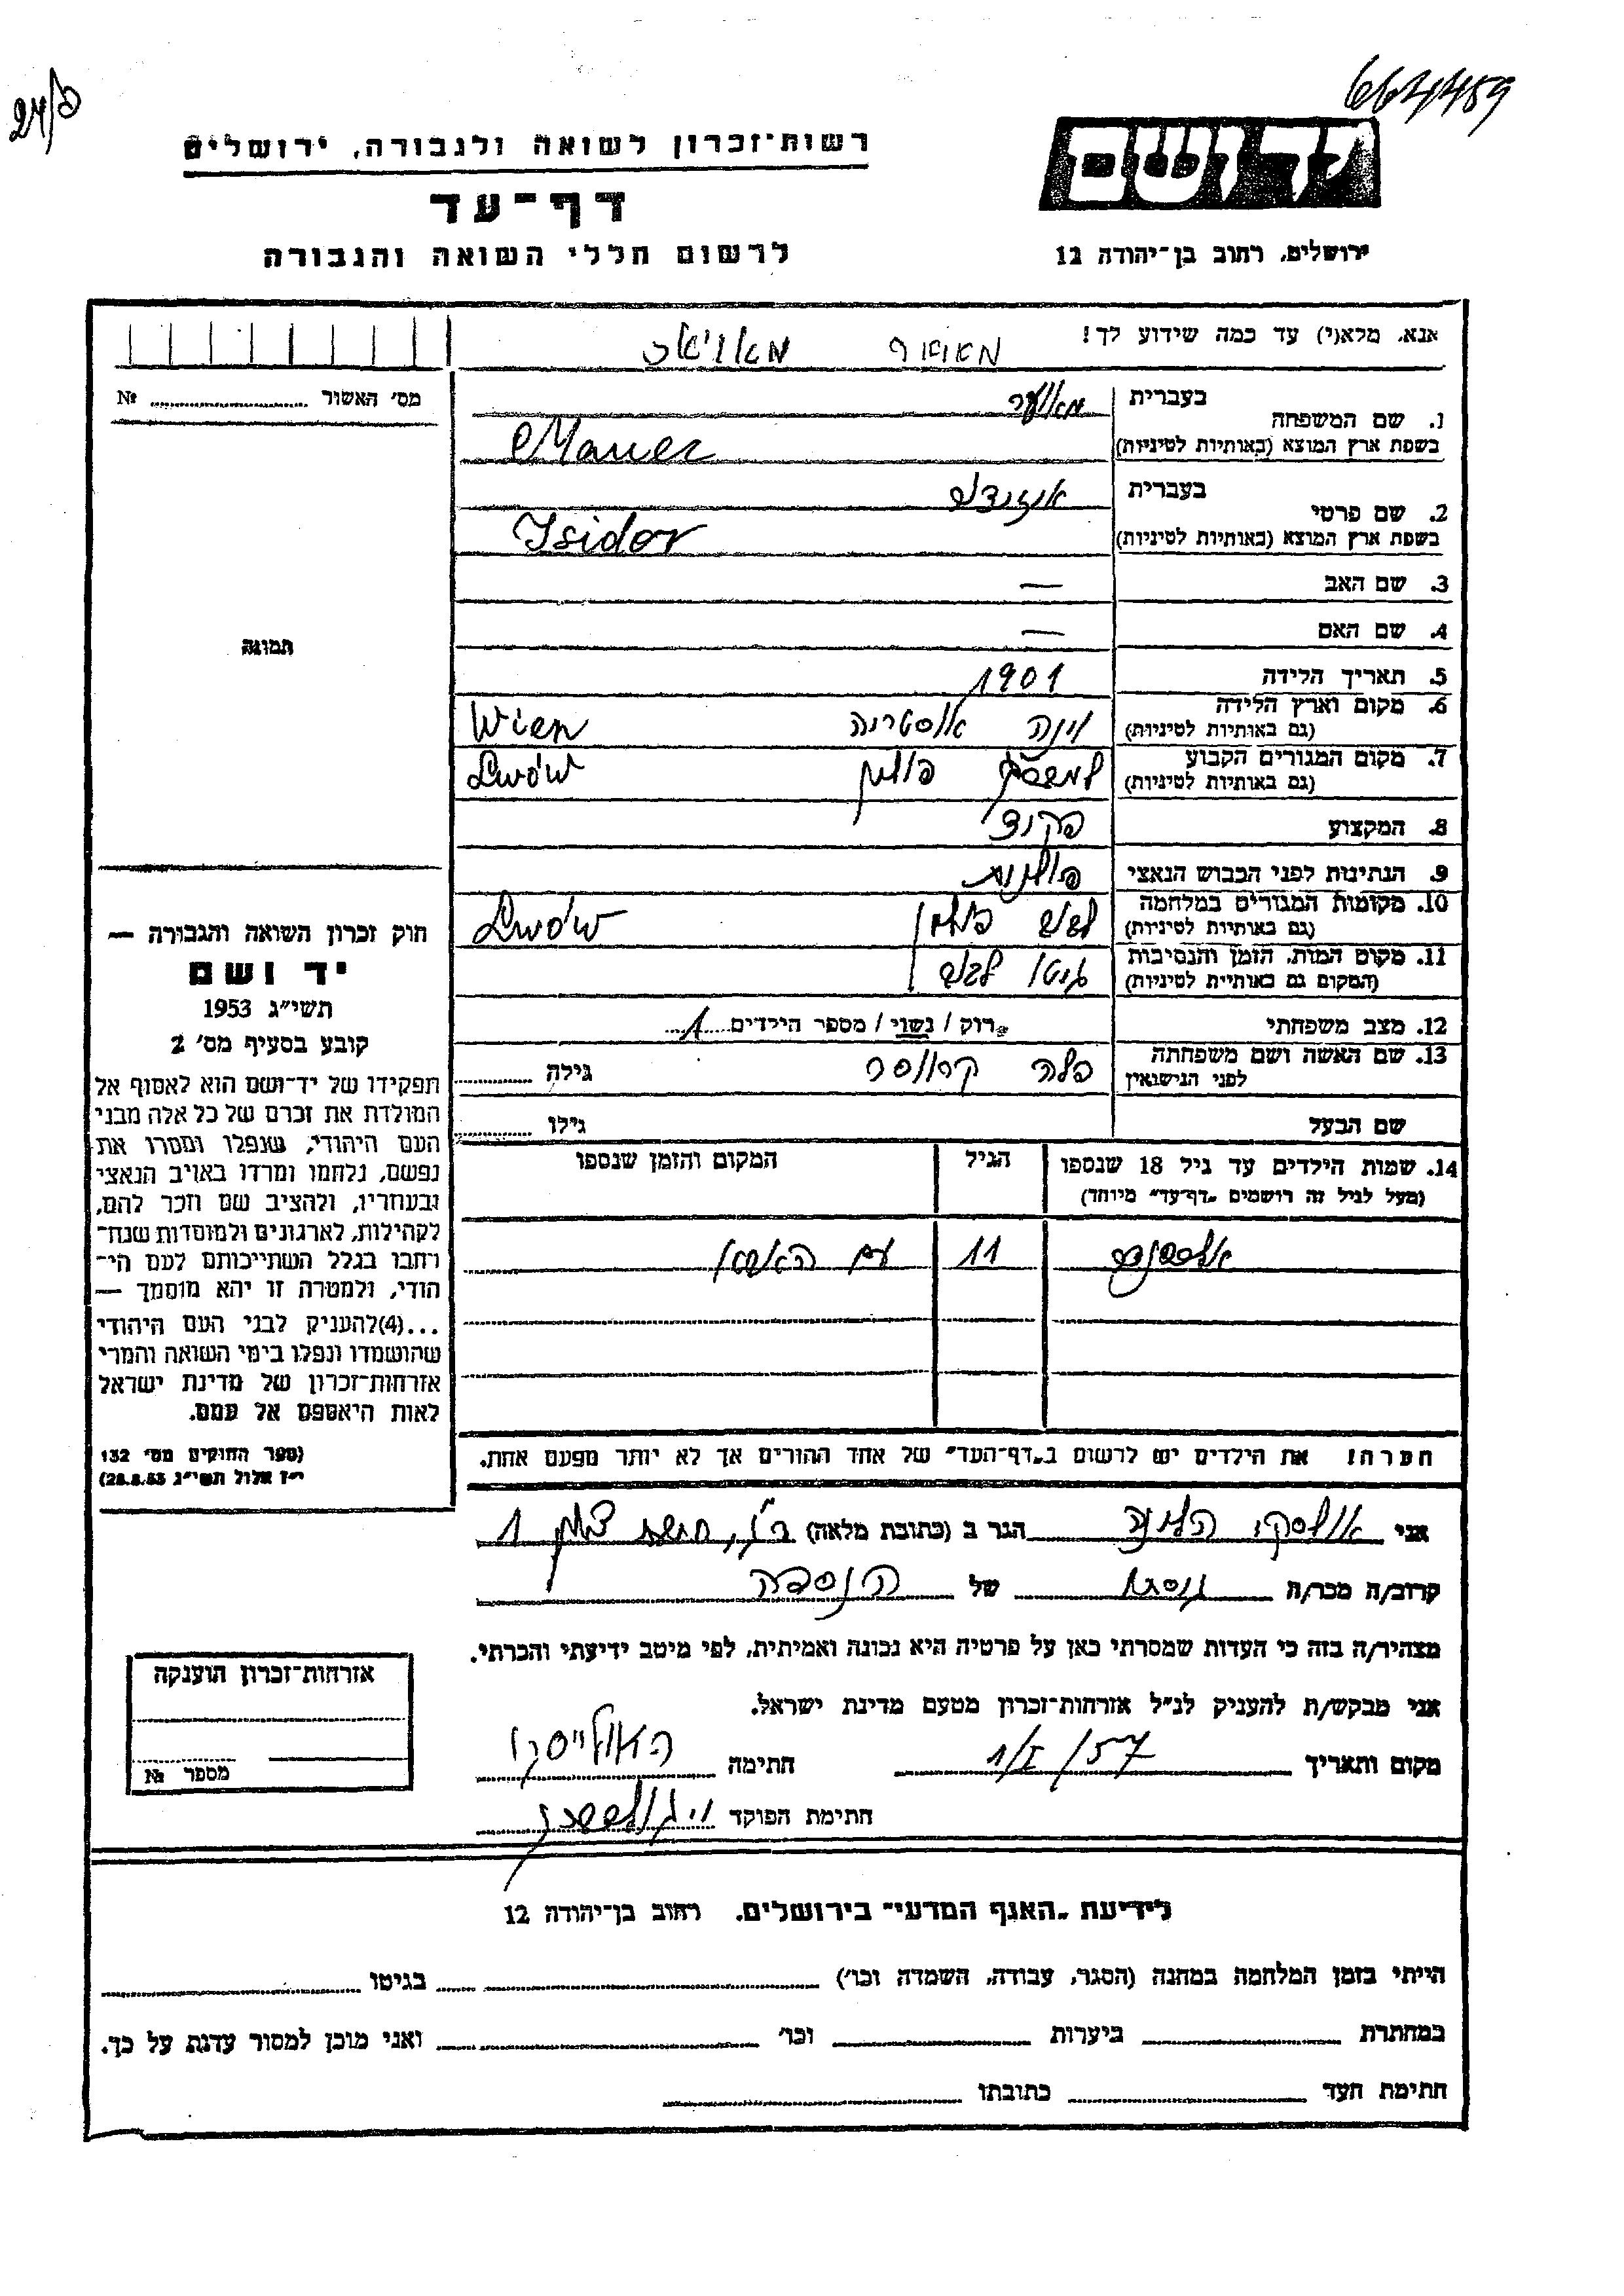 664459
24/5
יד ושם
רשות־זכרון לשואה ולגבורה, ירושלים
דף־עד
לרשום חללי השואה והגבורה
ירושלים, רחוב בן־יהודה 12
אנא, מלא(י) עד כמה שידוע לך!
מס' האשור № ........
1. שם המשפחה בעברית מאוער
בשפת ארץ המוצא (באותיות לטיניות) Mauer
2. שם פרטי בעברית איזידור
בשפת ארץ המוצא (באותיות לטיניות) Isidor
3. שם האב —
4. שם האם —
תמונה
5. תאריך הלידה 1901
6. מקום וארץ הלידה וינה אוסטריה Wien
(גם באותיות לטיניות)
7. מקום המגורים הקבוע פולין Lwów
(גם באותיות לטיניות)
8. המקצוע פקיד
9. הנתינות לפני הכבוש הנאצי פולנית
10. מקומות המגורים במלחמה לבוב פולין Lwów
(גם באותיות לטיניות)
11. מקום המות, הזמן והנסיבות גיטו לבוב
(המקום גם באותיות לטיניות)
12. מצב משפחתי רוק / נשוי / מספר הילדים 1
13. שם האשה ושם משפחתה בלה גילה ........
לפני הנישואין
שם הבעל גילו ........
14. שמות הילדים עד גיל 18 שנספו הגיל המקום והזמן שנספו
(מעל לגיל זה רושמים „דף־עד” מיוחד)
11
הערה: את הילדים יש לרשום ב„דף־העד” של אחד ההורים אך לא יותר מפעם אחת.
חוק זכרון השואה והגבורה —
יד ושם
תשי״ג 1953
קובע בסעיף מס' 2
תפקידו של יד־ושם הוא לאסוף אל
המולדת את זכרם של כל אלה מבני
העם היהודי, שנפלו ומסרו את
נפשם, נלחמו ומרדו באויב הנאצי
ובעוזריו, ולהציב שם וזכר להם,
לקהילות, לארגונים ולמוסדות שנח־
רבו בגלל השתייכותם לעם הי־
הודי, ולמטרה זו יהא מוסמך —
...(4) להעניק לבני העם היהודי
שהושמדו ונפלו בימי השואה והמרי
אזרחות־זכרון של מדינת ישראל
לאות היאספם אל עמם.
(ספר החוקים מס' 132
י״ז אלול תשי״ג 28.8.53)
אני הלינה הגר ב (כתובת מלאה) 1
קרוב/ה מכר/ה גיסתו של הנספה
מצהיר/ה בזה כי העדות שמסרתי כאן על פרטיה היא נכונה ואמיתית, לפי מיטב ידיעתי והכרתי.
אני מבקש/ת להעניק לנ״ל אזרחות־זכרון מטעם מדינת ישראל.
מקום ותאריך 1/I/57 חתימה
חתימת הפוקד
אזרחות־זכרון הוענקה
מספר №
לידיעת „האגף המדעי” בירושלים. רחוב בן־יהודה 12
הייתי בזמן המלחמה במחנה (הסגר, עבודה, השמדה וכו') ........ בגיטו ........
במחתרת ........ ביערות ........ וכו' ........ ואני מוכן למסור עדות על כך.
חתימת העד ........ כתובתו ........